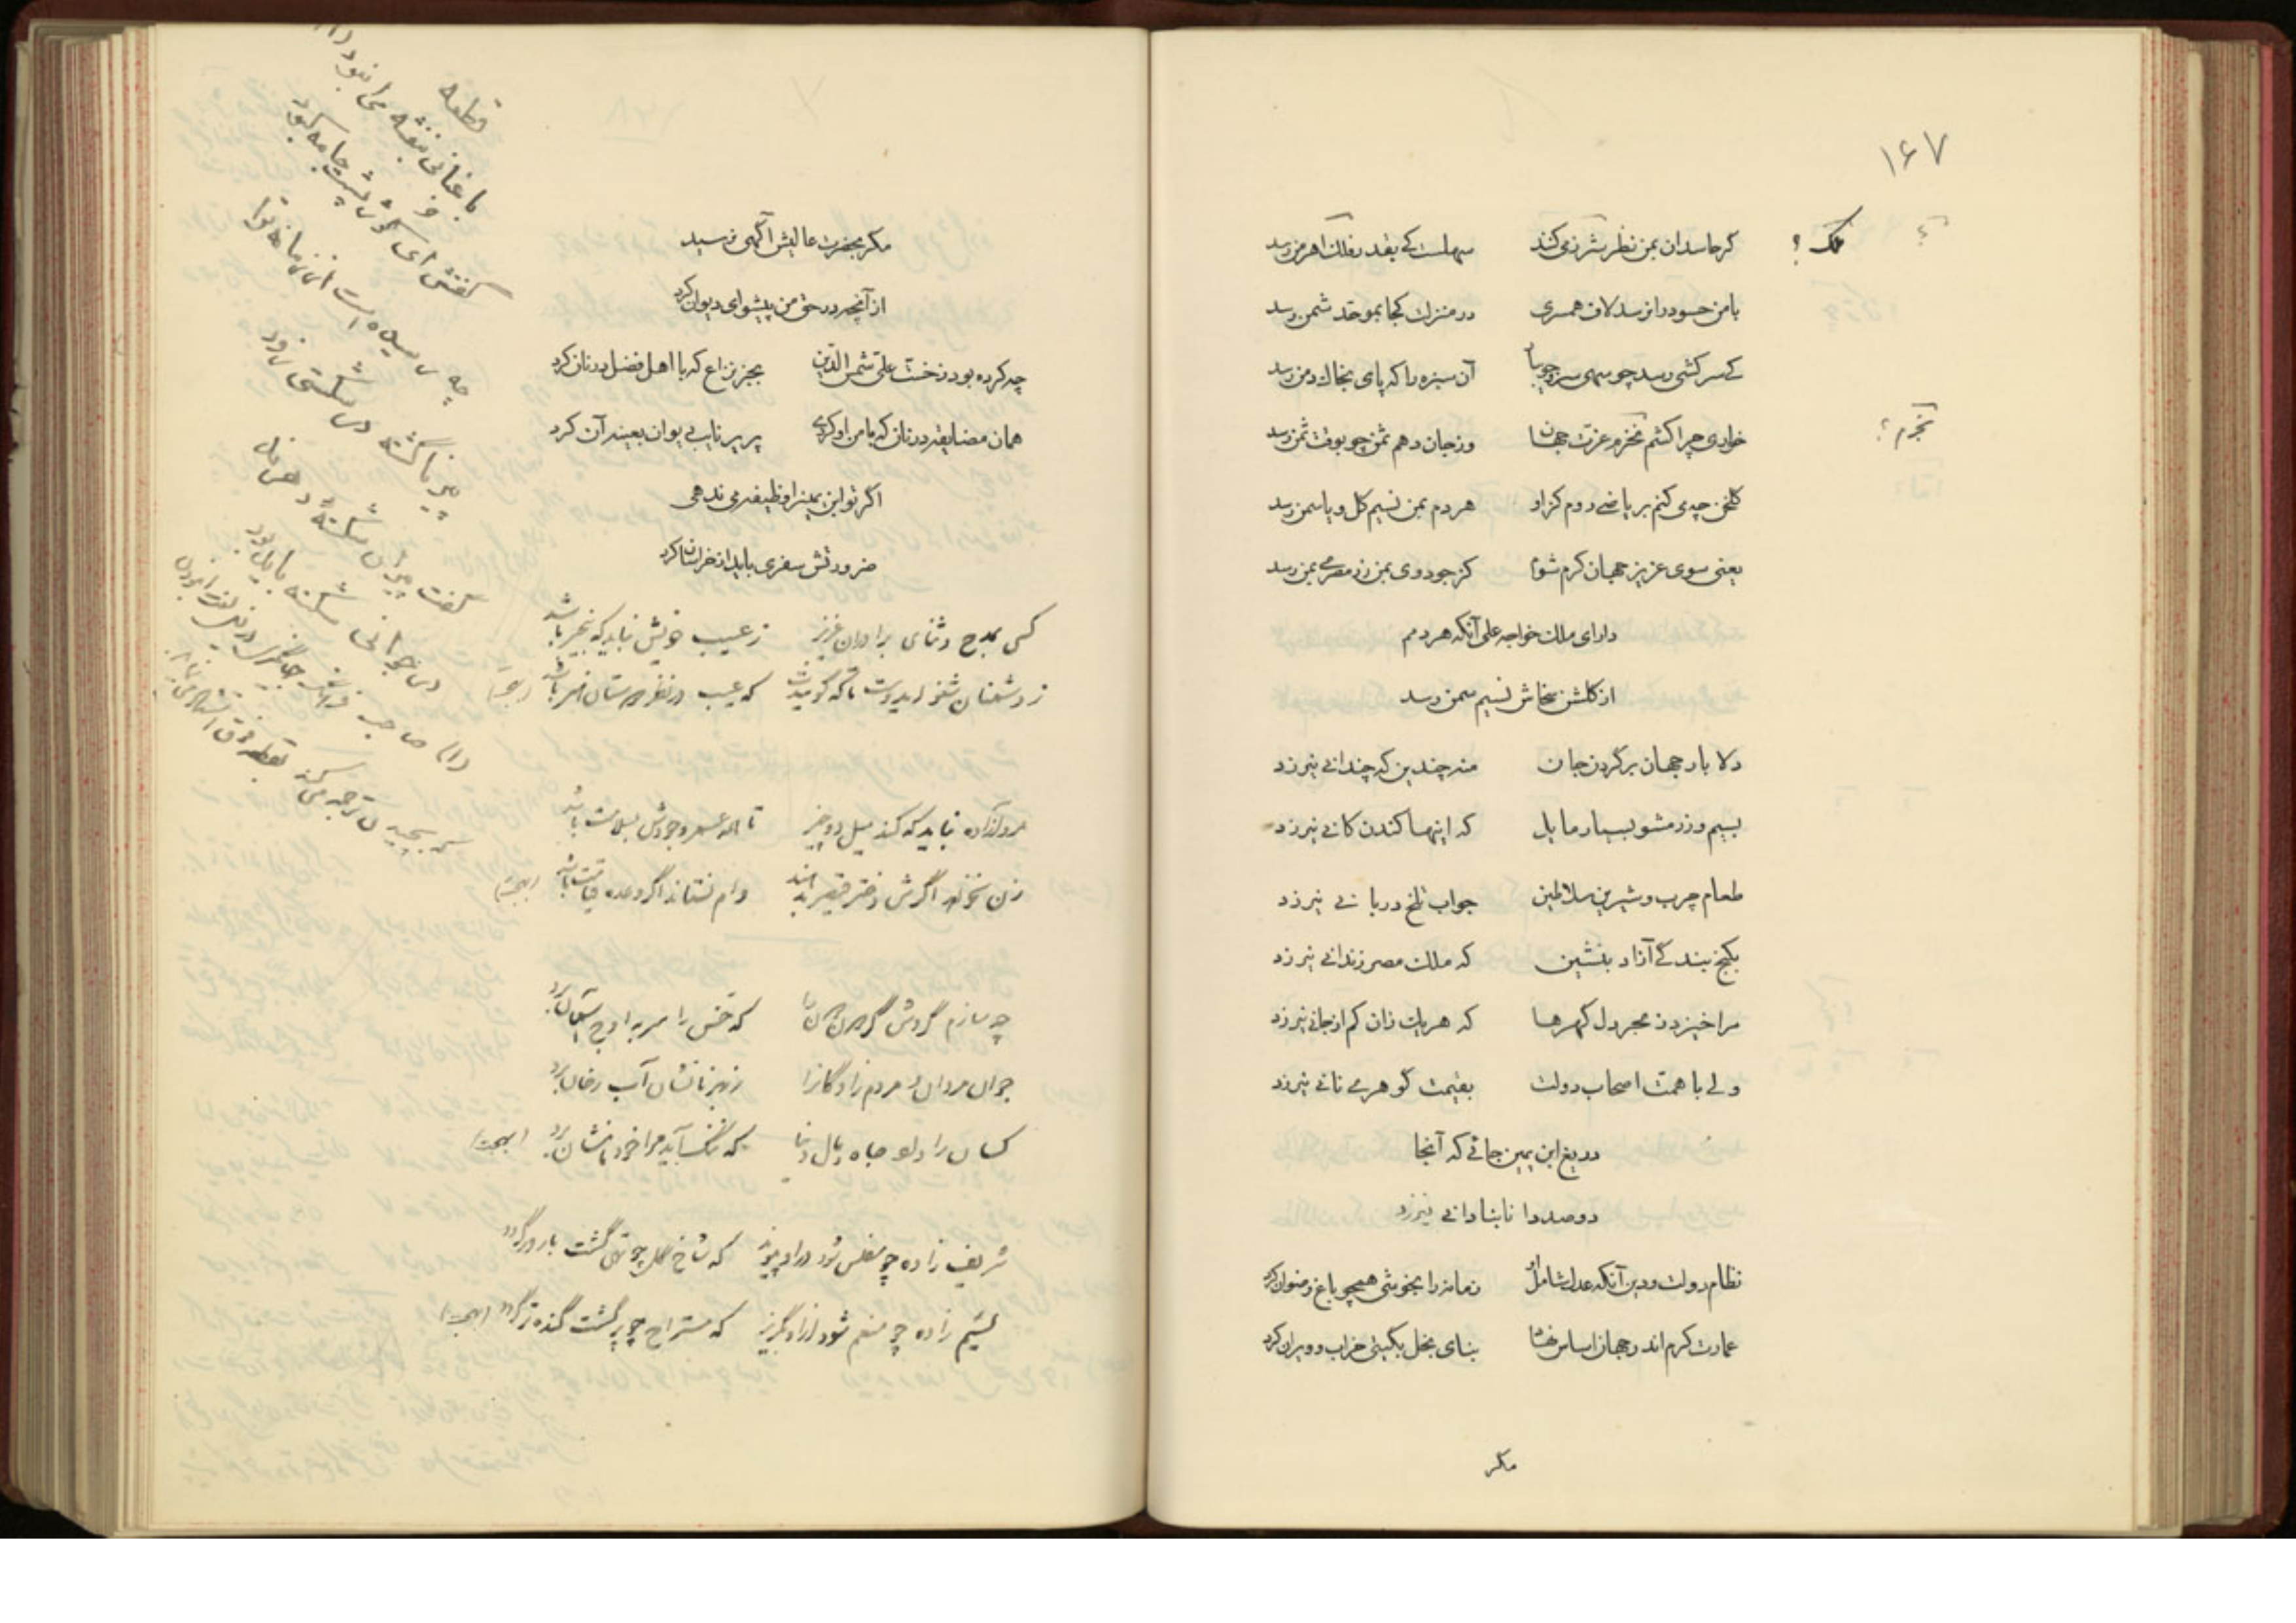 ۱۶۷
گر حاسدان بمن نظر شزر می‌کنند    سهلست کی بقدر فلک اهرمن رسد
با من حسود را نرسد لاف همسری    در منزلت کجا بموقد شمن رسد
کی سرکشی رسد چو سهی سرو جویبار    آن سبزه را که پای بخاک دمن رسد
خواری چرا کشم نخرم عزت جهان    ور جان دهم ثمن چو بوقت ثمن رسد
گلخن چه می‌کنم بریاضی روم کز او    هر دم بمن نسیم گل و یاسمن رسد
یعنی سوی عزیز جهان کرم شوم    کز جود وی بمن زر مصری بمن رسد
دارای ملک خواجه علی آنکه هر دمم
از گلشن سخاش نسیم سمن رسد
دلا بار جهان بر گردن جان    منه چندین که چندانی نیرزد
بسیم و زر مشو بسیار مایل    که اینها کندن کانی نیرزد
طعام چرب و شیرین سلاطین    جواب تلخ دربانی نیرزد
بکنج بندگی آزاد بنشین    که ملک مصر زندانی نیرزد
مرا خیزد ز بحر دل گهرها    که هر یک زان کم از جانی نیرزد
ولی با همت اصحاب دولت    بقیمت گوهری نانی نیرزد
دریغ ابن یمین جائی که آنجا
دو صد دانا بنادانی نیرزد
نظام دولت و دین آنکه عدل شامل او    زمانه را بخوشی همچو باغ رضوان کرد
عمارت کرم اندر جهان اساس نهاد    بنای بخل بگیتی خراب و ویران کرد
مگر
مگر بحضرت عالیش آگهی نرسید
از آنچه در حق من پیشوای دیوان کرد
چه کرده بود ز خست علی شمس الدین    بجز نزاع که با اهل فضل در نان کرد
همان مضایقه در نان که با من او کردی    پریر نایب دیوان بعینه آن کرد
اگر تو ابن یمین را وظیفه می ندهی
ضرورتش سفری باید از خراسان کرد
کسی بمدح و ثنای برادران عزیز    ز عیب خویش نباید که بیخبر باشد
ز دشمنان شنو ای دوست تا چه گویندت    که عیب در نظر دوستان هنر باشد
مرد آزاده نباید که کند میل دو چیز    تا همه عمر وجودش بسلامت باشد
زن نخواهد اگرش دختر قیصر بدهند    وام نستاند اگر وعده قیامت باشد
چه سازم گردش گردون گردان را    که خس را سر به اوج آسمان برد
جوان مردان و مردم زادگانرا    ز بهر نانشان آب رخان برد
کسان را داد جاه و مال دنیا    که ننگ آید مرا خود نامشان برد
شریف زاده چو مفلس شود در او پیوند    که شاخ گل چو تهی گشت بارور گردد
لئیم زاده چو منعم شود از او بگریز    که مستراح چو پر گشت گنده‌تر گردد
قطعه
باغبانی بنفشه می انبود (۱)
گفتش ای گوژپشت جامه کبود
چه رسیده است از زمانه ترا
پیر ناگشته در شکستی زود
گفت پیران شکسته دهرند
در جوانی شکسته باید بود